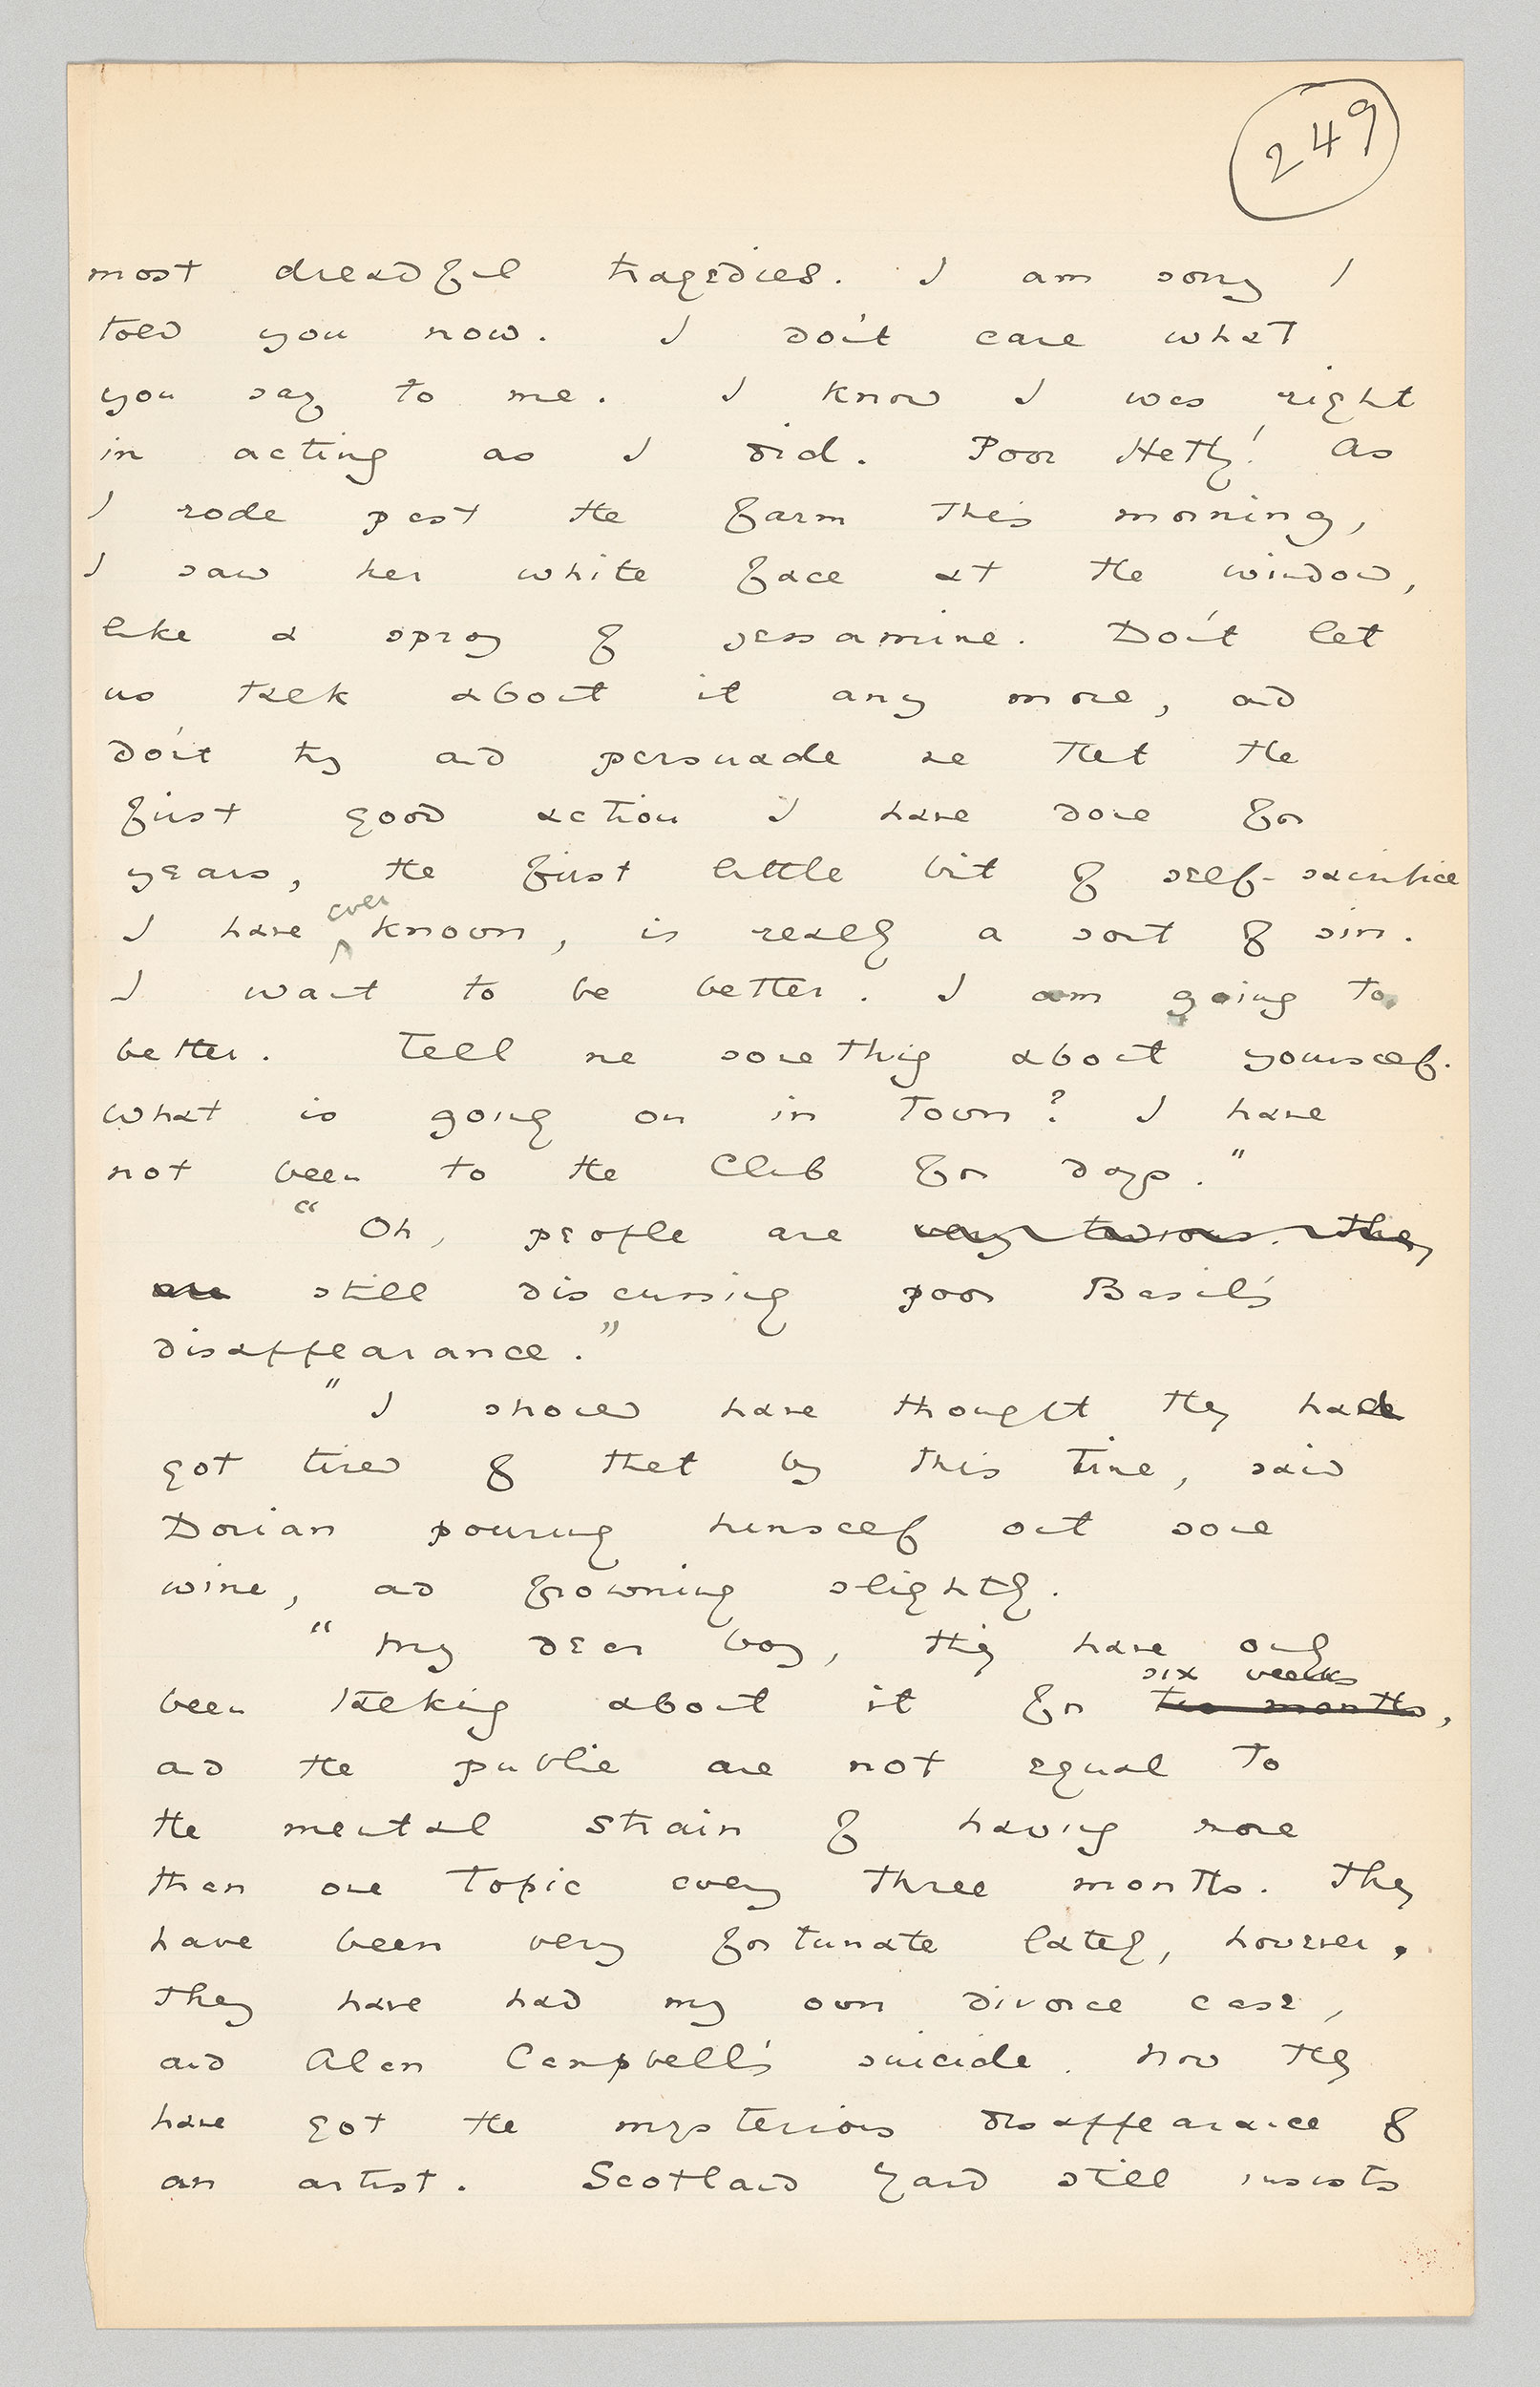 249
most dreadful tragedies. I am sorry I
told you now. I don't care what
you say to me. I know I was right
in acting as I did. Poor Hetty! As
I rode past the farm this morning,
I saw her white face at the window,
like a spray of jessamine. Don't let
us talk about it any more, and
don't try and persuade me that the
first good action I have done for
years, the first little bit of self-sacrifice
I have ever known, is really a sort of sin.
I want to be better. I am going to
better. Tell me something about yourself.
What is going on in Town? I have
not been to the Club for days."
"Oh, people are very tedious. They
are still discussing poor Basil's
disappearance."
"I should have thought they had
got tired of that by this time, said
Dorian pouring himself out some
wine, and frowning slightly.
"My dear boy, they have only
six weeks
been talking about it for two months,
and the public are not equal to
the mental strain of having more
than one topic every three months. They
have been very fortunate lately, however.
They have had my own divorce case,
and Alan Campbell's suicide. Now they
have got the mysterious disappearance of
an artist. Scotland Yard still insists